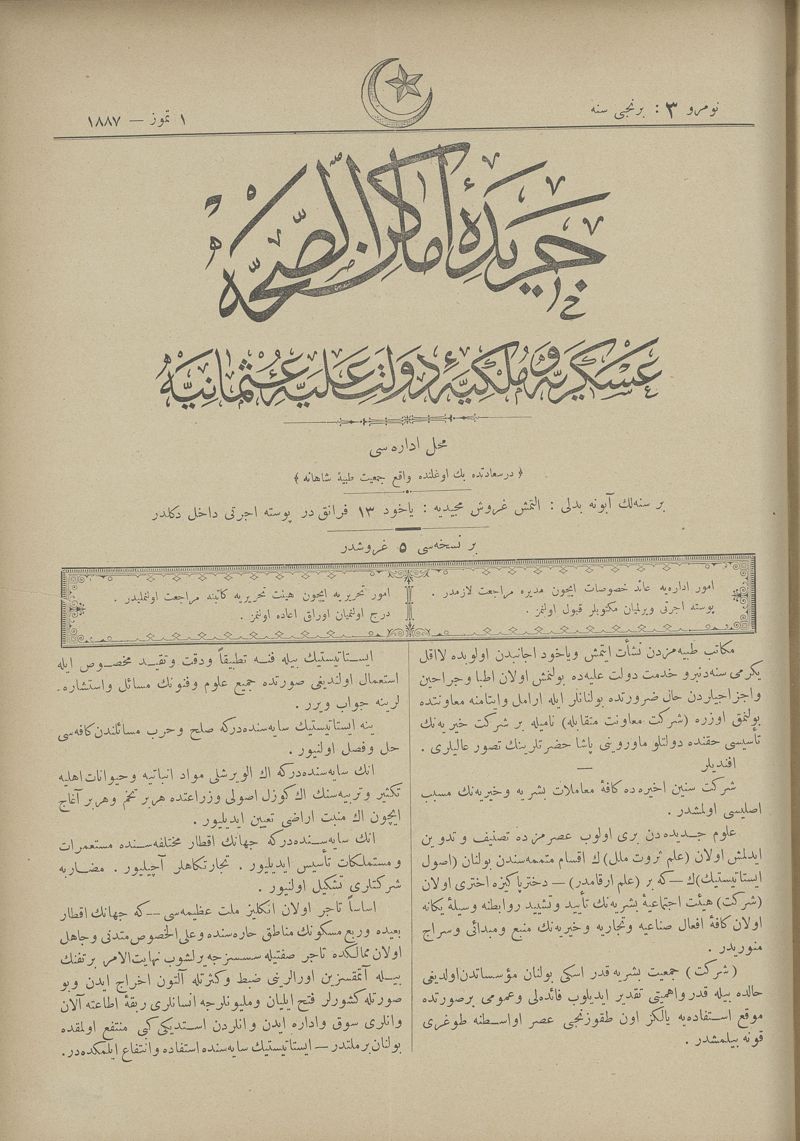 نومرو ٣ : برنجی سنه
١ تموز — ١٨٨٧
جریدهٔ اماكن الصّحّه
عسكریه و ملكیهٔ دولت علیهٔ عثمانیه
محل اداره‌سی
﴿ درسعادتده بك اوغلنده واقع جمعیت طبیهٔ شاهانه ﴾
بر سنه‌لك آبونه بدلی : التمش غروش مجیدیه : یاخود ١٣ فرانق در پوسته اجرتی داخل دكلدر
بر نسخه‌سی ٥ غروشدر
امور اداره‌یه عائد خصوصات ایچون مدیره مراجعت لازمدر .
پوسته اجرتی ویرلمیان مكتوبلر قبول اولنمز .
امور تحریریه ایچون هیئت تحریریه كاتبنه مراجعت اولنملیدر .
درج اولنمیان اوراق اعاده اولنمز .
مكاتب طبیه‌مزدن نشأت ایتمش ویاخود اجانبدن اولوبده لااقل
یكرمی سنه‌دنبرو خدمت دولت علیه‌ده بولنمش اولان اطبا وجراحین
واجزاجیلردن حال ضرورتده بولنانلر ایله ارامل وایتامنه معاونتده
بولنمق اوزره (شركت معاونت متقابله) نامیله بر شركت خیریه‌نك
تأسیسی حقنده دولتلو ماوروینی پاشا حضرتلرینك تصور عالیلری .
افندیلر
—
شركت سنین اخیره‌ده كافهٔ معاملات بشریه وخیریه‌نك مسبب
اصلیسی اولمشدر .
علوم جدیده‌دن بری اولوب عصرمزده تصنیف و تدوین
ایدلمش اولان (علم ثروت ملل) ك اقسام متممه‌سندن بولنان (اصول
ایستاتیستیك)ك — كه بر (علم ارقامدر) — دختر پاكیزه اختری اولان
(شركت) هیئت اجتماعیهٔ بشریه‌نك تأیید وتشیید روابطنه وسیلهٔ یكانه
اولان كافهٔ افعال صناعیه وتجاریه وخیریه‌نك منبع ومبدائی وسراج
منوریدر .
(شركت) جمعیت بشریه قدر اسكی بولنان مؤسساتدن اولدیغی
حالده بیله قدر واهمیتی تقدیر ایدیلوب فائده‌لی وعمومی بر صورتده
موقع استفاده‌یه یالكز اون طقوزنجی عصر اواسطنه طوغری
قونه بیلمشدر .
ایستاتیستیك بیله فننه تطبیقاً ودقت وتقید مخصوص ایله
استعمال اولندیغی صورتده جمیع علوم وفنونك مسائل واستشاره‌-
لرینه جواب ویرر .
ینه ایستاتیستیك سایه‌سنده‌دركه صلح وحرب مسائلندن كافه‌سی
حل وفصل اولنیور .
انك سایه‌سنده‌دركه اك الویرشلی مواد انباتیه وحیوانات اهلیه
تكثیر وتربیه‌سنك اك كوزل اصولی وزراعتده هر بر تخم وهر بر آغاج
ایچون اك منبت اراضی تعیین ایدیلیور .
انك سایه‌سنده‌دركه جهانك اقطار مختلفه‌سنده مستعمرات
ومستملكات تأسیس ایدیلیور . تجارتكاهلر آچیلیور . مضاربه
شركتلری تشكیل اولنیور .
اساساً تاجر اولان انكلیز ملت عظیمه‌سی — كه جهانك اقطار
بعیده وربع مسكونك مناطق حاره‌سنده وعلی الخصوص متدنی وجاهل
اولان ممالكده تاجر صفتیله سسسزجه یرلشوب نهایت الامر بر تفنك
بیله آتمقسزین اورالرینی ضبط وكثرتله آلتون اخراج ایدن وبو
صورتله كشورلر فتح ایلیان وملیونلرجه انسانلری ربقهٔ اطاعته آلان
وانلری سوق واداره ایدن وانلردن استدیكی كبی منتفع اولمقده
بولنان بر ملتدر — ایستاتیستیك سایه‌سنده استفاده وانتفاع ایلمكده‌در .